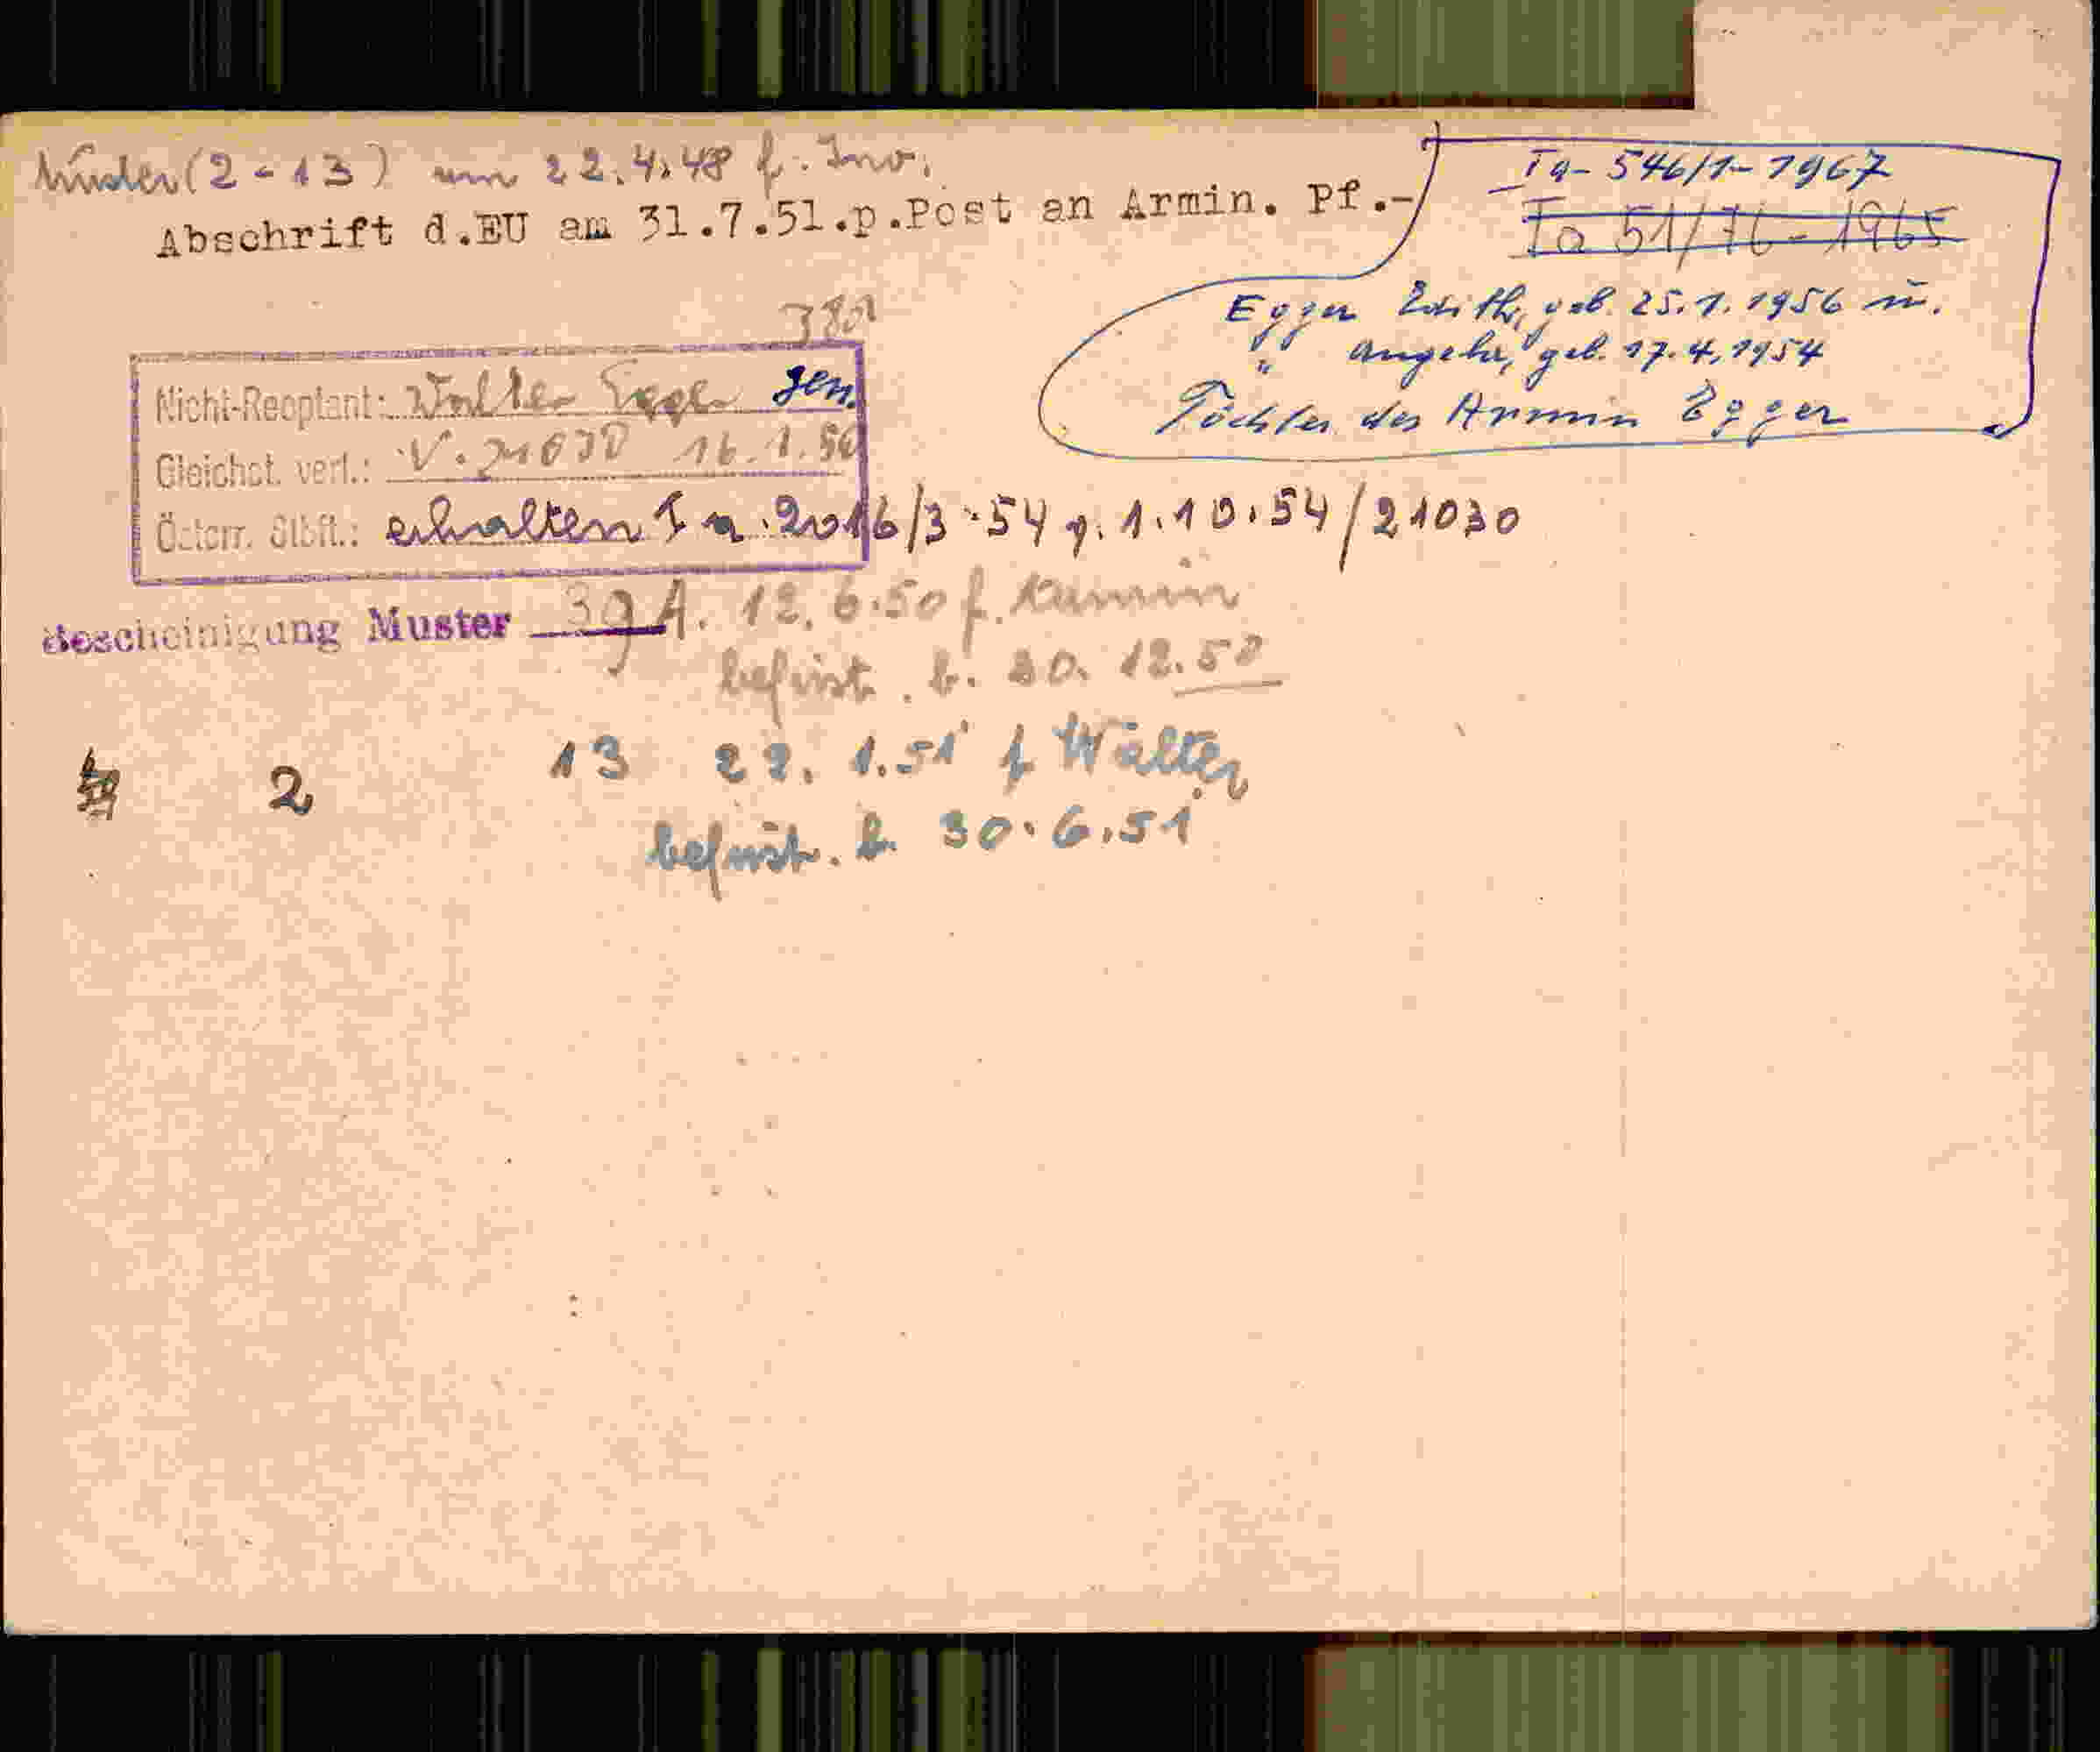 Muster (2-13) am 22.4.48 f. Inv.
Abschrift d.EU am 31.7.51.p.Post an Armin. Pf.-
Ia- 546/1-1967
Ia 51/76-1965
Egger Edith, geb. 25.1.1956 u.
" Angela, geb. 17.4.1954
Töchter des Armin Egger
Nicht-Reoptant: Walter Egger gen.
Gleichst. verl.: V. 21030 16.1.50
Österr. Stbft.: erhalten I a. 2016/3-54 v. 1.10.54/21030
Bescheinigung Muster 39 A. 12.6.50 f.
befrist. b. 30. 12.50
2 13 22. 1.51 f Walter
befrist. b. 30.6.51